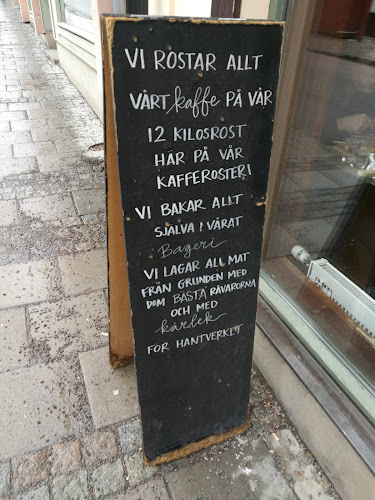 VI ROSTAR ALLT
VÅRT kaffe PÅ VÅR
12 KILOSROST
HÄR PÅ VÅR
KAFFEROSTERI
VI BAKAR ALLT
SJÄLVA I VÅRAT
Bageri
VI LAGAR ALL MAT
FRÅN GRUNDEN MED
DOM BÄSTA RÅVARORNA
OCH MED
kärlek
FÖR HANTVERKET